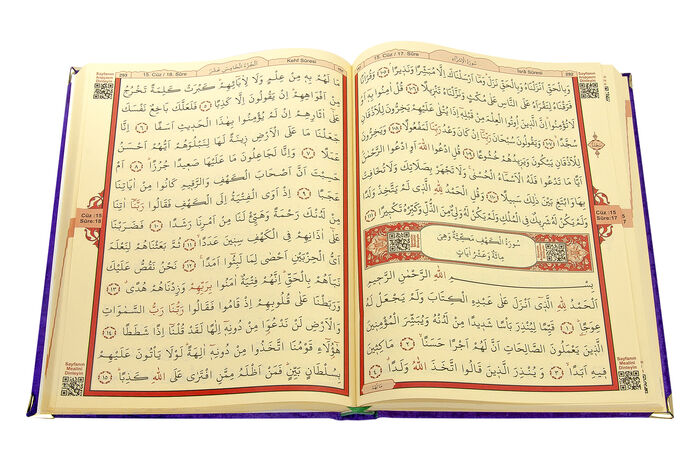 15. Cüz / 17. Sûre سُورَةُ الْاِسْرَاءِ İsrâ Sûresi 292
وَبِالْحَقِّ اَنْزَلْنَاهُ وَبِالْحَقِّ نَزَلَ وَمَا اَرْسَلْنَاكَ اِلَّا مُبَشِّرًا وَنَذِيرًا ﴿١٠٥﴾ وَقُرْاٰنًا
فَرَقْنَاهُ لِتَقْرَاَهُ عَلَى النَّاسِ عَلٰى مُكْثٍ وَنَزَّلْنَاهُ تَنْزِيلًا ﴿١٠٦﴾ قُلْ اٰمِنُوا بِهِ اَوْ
لَا تُؤْمِنُوا اِنَّ الَّذِينَ اُوتُوا الْعِلْمَ مِنْ قَبْلِهِ اِذَا يُتْلٰى عَلَيْهِمْ يَخِرُّونَ لِلْاَذْقَانِ سُجَّدًا ﴿١٠٧﴾
وَيَقُولُونَ سُبْحَانَ رَبِّنَا اِنْ كَانَ وَعْدُ رَبِّنَا لَمَفْعُولًا ﴿١٠٨﴾ وَيَخِرُّونَ
لِلْاَذْقَانِ يَبْكُونَ وَيَزِيدُهُمْ خُشُوعًا ﴿١٠٩﴾ قُلِ ادْعُوا اللهَ اَوِ ادْعُوا الرَّحْمٰنَ
اَيًّا مَا تَدْعُوا فَلَهُ الْاَسْمَاءُ الْحُسْنٰى وَلَا تَجْهَرْ بِصَلَاتِكَ وَلَا تُخَافِتْ
بِهَا وَابْتَغِ بَيْنَ ذٰلِكَ سَبِيلًا ﴿١١٠﴾ وَقُلِ الْحَمْدُ لِلّٰهِ الَّذِي لَمْ يَتَّخِذْ
وَلَدًا وَلَمْ يَكُنْ لَهُ شَرِيكٌ فِي الْمُلْكِ وَلَمْ يَكُنْ لَهُ وَلِيٌّ مِنَ الذُّلِّ وَكَبِّرْهُ تَكْبِيرًا ﴿١١١﴾
سُورَةُ الْكَهْفِ مَكِّيَّةٌ وَهِيَ
مِائَةٌ وَعَشْرُ اٰيَاتٍ
بِسْمِ اللهِ الرَّحْمٰنِ الرَّحِيمِ
اَلْحَمْدُ لِلّٰهِ الَّذِي اَنْزَلَ عَلٰى عَبْدِهِ الْكِتَابَ وَلَمْ يَجْعَلْ لَهُ
عِوَجًا ﴿١﴾ قَيِّمًا لِيُنْذِرَ بَأْسًا شَدِيدًا مِنْ لَدُنْهُ وَيُبَشِّرَ الْمُؤْمِنِينَ
الَّذِينَ يَعْمَلُونَ الصَّالِحَاتِ اَنَّ لَهُمْ اَجْرًا حَسَنًا ﴿٢﴾ مَاكِثِينَ
فِيهِ اَبَدًا ﴿٣﴾ وَيُنْذِرَ الَّذِينَ قَالُوا اتَّخَذَ اللهُ وَلَدًا ﴿٤﴾
مَا لَهُمْ
Cüz :15
Sûre:17
293 15. Cüz / 18. Sûre اَلْجُزْءُ الْخَامِسُ عَشَرَ Kehf Sûresi
Sayfanın
Arapçasını
Dinleyin
مَا لَهُمْ بِهِ مِنْ عِلْمٍ وَلَا لِاٰبَائِهِمْ كَبُرَتْ كَلِمَةً تَخْرُجُ
مِنْ اَفْوَاهِهِمْ اِنْ يَقُولُونَ اِلَّا كَذِبًا ﴿٥﴾ فَلَعَلَّكَ بَاخِعٌ نَفْسَكَ
عَلٰى اٰثَارِهِمْ اِنْ لَمْ يُؤْمِنُوا بِهٰذَا الْحَدِيثِ اَسَفًا ﴿٦﴾ اِنَّا
جَعَلْنَا مَا عَلَى الْاَرْضِ زِينَةً لَهَا لِنَبْلُوَهُمْ اَيُّهُمْ اَحْسَنُ
عَمَلًا ﴿٧﴾ وَاِنَّا لَجَاعِلُونَ مَا عَلَيْهَا صَعِيدًا جُرُزًا ﴿٨﴾ اَمْ
حَسِبْتَ اَنَّ اَصْحَابَ الْكَهْفِ وَالرَّقِيمِ كَانُوا مِنْ اٰيَاتِنَا
عَجَبًا ﴿٩﴾ اِذْ اَوَى الْفِتْيَةُ اِلَى الْكَهْفِ فَقَالُوا رَبَّنَا اٰتِنَا
مِنْ لَدُنْكَ رَحْمَةً وَهَيِّئْ لَنَا مِنْ اَمْرِنَا رَشَدًا ﴿١٠﴾ فَضَرَبْنَا
عَلٰى اٰذَانِهِمْ فِي الْكَهْفِ سِنِينَ عَدَدًا ﴿١١﴾ ثُمَّ بَعَثْنَاهُمْ لِنَعْلَمَ
اَيُّ الْحِزْبَيْنِ اَحْصٰى لِمَا لَبِثُوا اَمَدًا ﴿١٢﴾ نَحْنُ نَقُصُّ عَلَيْكَ
نَبَاَهُمْ بِالْحَقِّ اِنَّهُمْ فِتْيَةٌ اٰمَنُوا بِرَبِّهِمْ وَزِدْنَاهُمْ هُدًى ﴿١٣﴾
وَرَبَطْنَا عَلٰى قُلُوبِهِمْ اِذْ قَامُوا فَقَالُوا رَبُّنَا رَبُّ السَّمٰوَاتِ
وَالْاَرْضِ لَنْ نَدْعُوَا مِنْ دُونِهِ اِلٰهًا لَقَدْ قُلْنَا اِذًا شَطَطًا ﴿١٤﴾
هٰؤُلَاءِ قَوْمُنَا اتَّخَذُوا مِنْ دُونِهِ اٰلِهَةً لَوْلَا يَأْتُونَ عَلَيْهِمْ
بِسُلْطَانٍ بَيِّنٍ فَمَنْ اَظْلَمُ مِمَّنِ افْتَرٰى عَلَى اللهِ كَذِبًا ﴿١٥﴾
Cüz :15
Sûre:18
Sayfanın
Mealini
Dinleyin